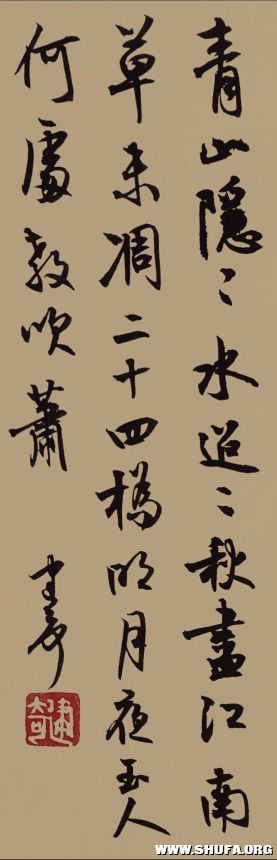 青山隱〻水迢〻秋盡江南
草未凋二十四橋明月夜玉人
何處教吹蕭
WWW.SHUFA.ORG